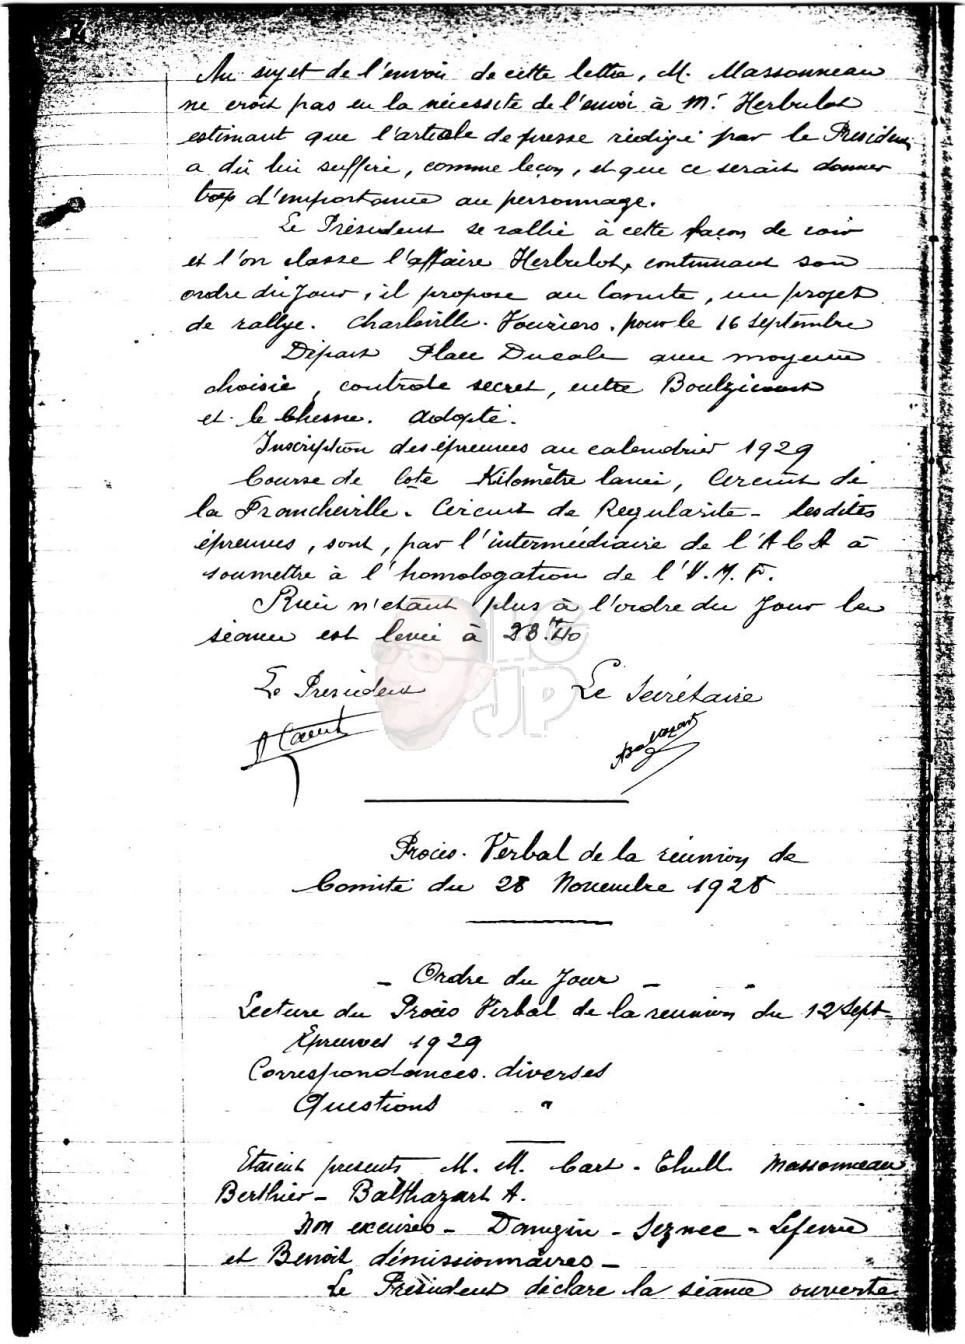 Au sujet de l'envoi de cette lettre, M. Massonneau
ne croit pas en la nécessité de l'envoi à Mr Herbulot
estimant que l'article de presse rédigé par le Président
a dû lui suffire, comme leçon, et que ce serait donner
trop d'importance au personnage.
Le Président se rallie à cette façon de voir
et l'on classe l'affaire Herbulot, continuant son
ordre du Jour, il propose au Comité, un projet
de rallye. Charleville. Vouziers. pour le 16 Septembre
Départ Place Ducale avec moyenne
choisie, controle secret, entre Boulzicourt
et le Chesne. adopté.
Inscription des épreuves au calendrier 1929
Course de Cote Kilomètre lancé, Circuit de
la Francheville. Circuit de Regularité - lesdites
épreuves, sont, par l'intermédiaire de l'A C A à
soumettre à l'homologation de l'U. M. F.
Rien n'étant plus à l'ordre du Jour la
séance est levée à 23.40
HG
JP
Le Président
Le Secrétaire
Balthazart
Procès. Verbal de la réunion de
Comité du 28 Novembre 1928
- Ordre du Jour -
Lecture du Procès Verbal de la reunion du 12 Sept
Epreuves 1929
Correspondances. diverses
Questions "
Etaient presents M. M. Cart - Thull Massonneau
Berthier - Balthazart A.
Non excusés - Dangin - Seznec - Lefevre
et Benoit démissionnaires -
Le Président déclare la séance ouverte